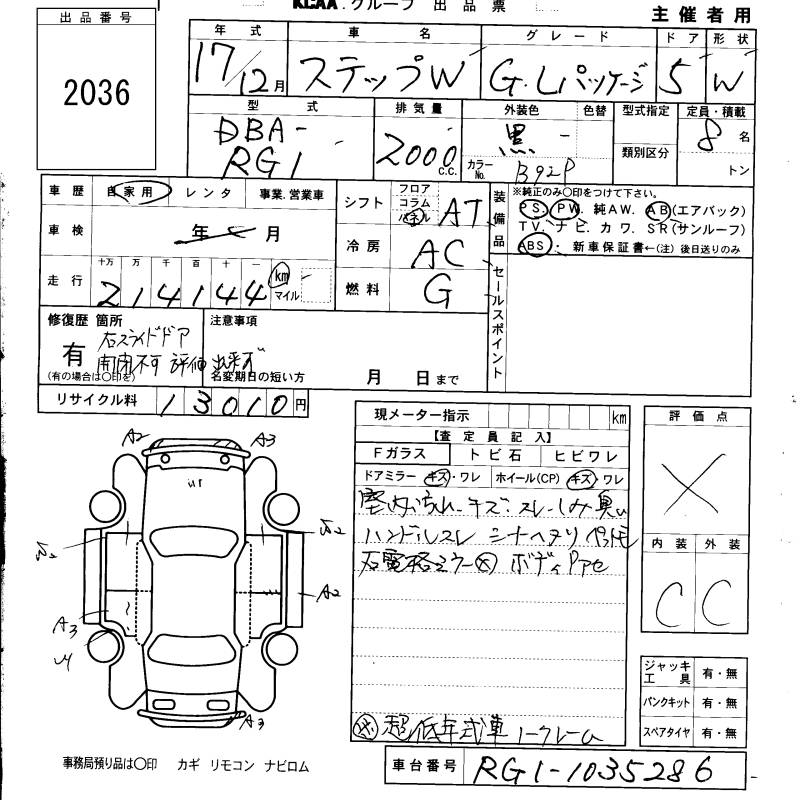 KCAA.グループ 出品票
主催者用
出品番号
2036
年式 車名 グレード ドア 形状
17/12月 ステップW G.Lパッケージ 5 W
型式 排気量 外装色 色替 型式指定 定員・積載
DBA-RG1 2000c.c. 黒 8名
カラーNo. B92P 類別区分 トン
車歴 自家用 レンタ 事業.営業車
車検 年 月
走行 十万 万 千 百 十 一
214144 km マイル
シフト フロア コラム パネル AT
冷房 AC
燃料 G
装備品
※純正のみ〇印をつけて下さい。
PS. PW. 純AW. AB(エアバック)
TV. ナビ. カワ. SR(サンルーフ)
ABS・ 新車保証書←(注)後日送りのみ
セールスポイント
修復歴 箇所 注意事項
有 右スライドドア
開閉不可 評価
(有の場合は〇印を) 名変期日の短い方 月 日まで
リサイクル料 13010円
現メーター指示 km
【査定員記入】
Fガラス トビ石 ヒビワレ
ドアミラー キズ・ワレ ホイール(CP) キズ・ワレ
キズ・スレ・シミ 臭い
ハンドルスレ シートヘタリ
右電格ミラー
超低年式車 ノークレーム
評価点
X
内装 外装
C C
ジャッキ工具 有・無
パンクキット 有・無
スペアタイヤ 有・無
A2 A3
A2
A3
A3
事務局預り品は〇印 カギ リモコン ナビロム
車台番号 RG1-1035286